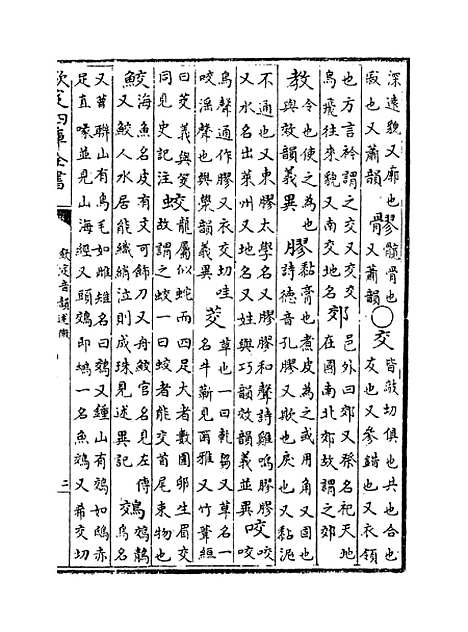 深遠貌又廓也
寂也又蕭韻
髎
髖骨也
又蕭韻
○交
皆敲切俱也共也合也
友也又參錯也又衣領
也方言衿謂之交又交交
鳥飛往來貌又南交地名
郊
邑外曰郊又祭名祀天地
在國南北郊故謂之郊
教
令也使之為也
與效韻義異
膠
黏膏也煮皮為之或用角又固也
詩德音孔膠又欺也戾也又黏泥
不通也又東膠太學名又膠膠和聲詩雞鳴膠膠
又水名出萊州又地名又姓與巧韻效韻義並異
咬
咬
咬
鳥聲通作膠又衣交切哇
咬淫聲也與樂韻義異
茭
草也一曰乾芻又草名一
名牛蘄見爾雅又竹葦絙
曰茭義與筊
同見史記注
蛟
龍屬似蛇而四足大者數圍卵生眉交
故謂之蛟一曰蛟者能交首尾束物也
鮫
海魚名皮有文可飾刀又舟鮫官名見左傳
又鮫人水居能織綃泣則成珠見述異記
鵁
鵁鶄
鳥名
又聯山有鳥毛如雌雉名曰鵁又鍾山有鵁如鳲赤
足直喙並見山海經又頭鵁即鴢一名魚鵁又希交切
欽定四庫全書
欽定音韻述微
二